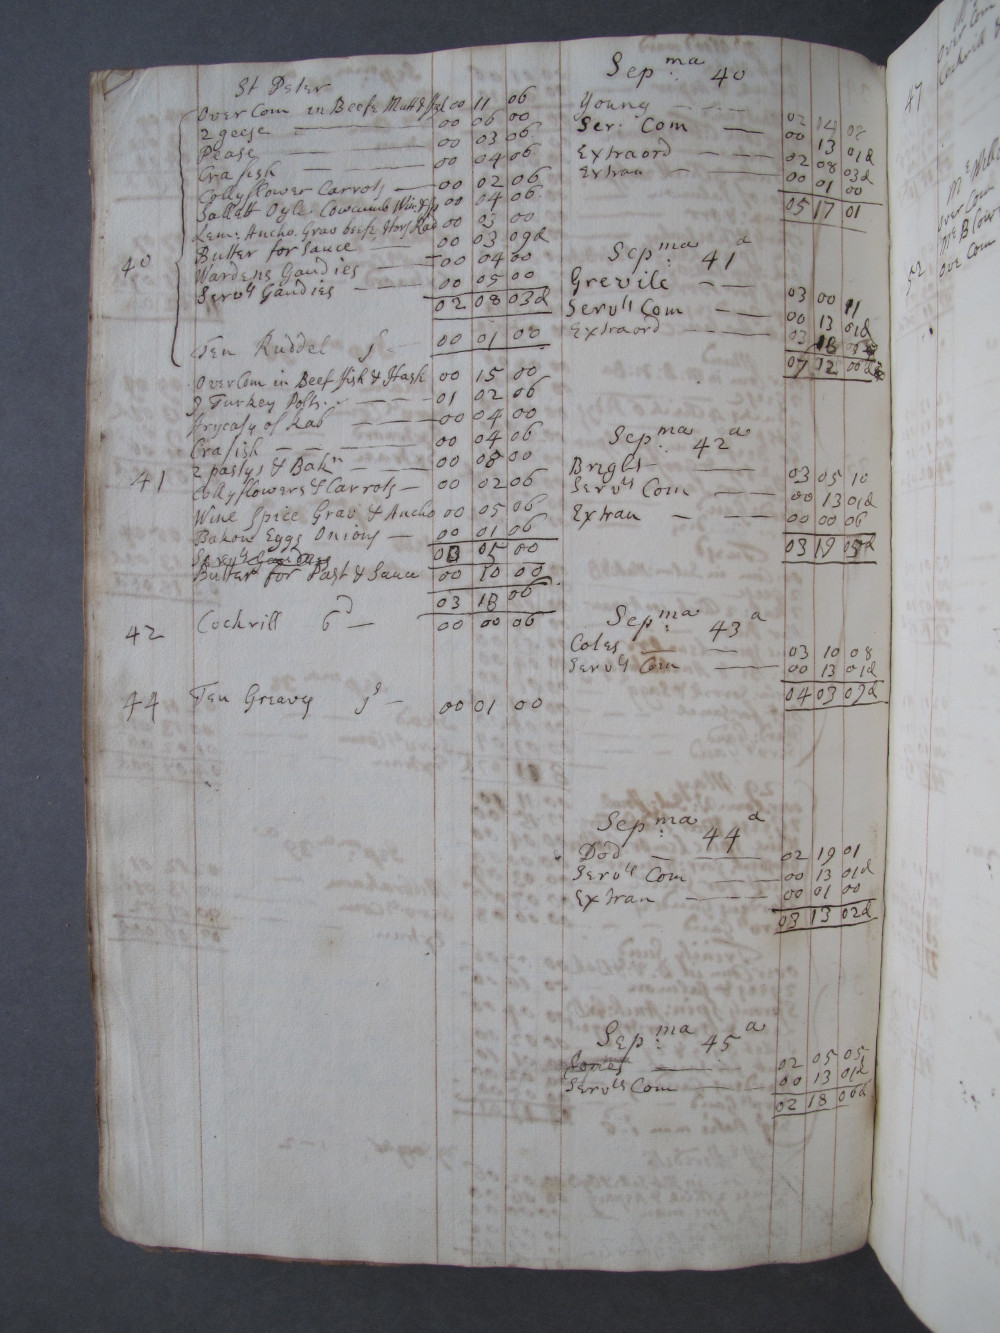 St Peter
Over Com in Beefe Mutt & 00 11 06
2 geese 00 06 00
Pease 00 03 06
Crafish 00 04 06
Collyflower Carrots 00 02 06
Sallatt Oyle Cowcumb Win 00 04 06
Lem: Ancho. Grav beefe Hors Rad 00 03 00
Butter for Sauce 00 03 09d
40 Wardens Gaudies 00 04 00
Servts Gaudies 00 05 00
02 08 03d
Ten Ruddel 00 01 00
Over Com in Beef fish & Hash 00 15 00
Turkey Polts 01 02 06
frycasy of Rab 00 04 00
Crafish 00 04 06
2 pastys & Bakn 00 08 00
41 Collyflowers & Carrots 00 02 06
Wine Spice Grav & Ancho 00 05 06
Bakon Eggs Onions 00 01 06
Servts Gaudies 03 05 00
Butter for Past & Sauce 00 10 00
03 18 06
42 Cockrill 6d 00 00 06
44 Ten Greavy 00 01 00
Sepma 40
Young 02 14 08
Ser: Com 00 13 01d
Extraord 02 08 03d
Extran 00 01 00
05 17 01
Sepma 41a
Grevile 03 00 11
Servts Com 00 13 01d
Extraord 03 18
07 12 00d
Sepma 42a
Bright 03 05 10
Servts Com 00 13 01d
Extran 00 00 06
03 19 05d
Sepma 43a
Coles 03 10 08
Servts Com 00 13 01d
04 03 09d
Sepma 44a
Dod 02 19 01
Servts Com 00 13 01d
Extran 00 01 00
03 13 02d
Sepma 45a
Jones 02 05 05
Servts Com 00 13 01d
02 18 06d
47
Over Com
Cockrill
Over Com
52
Ove Com